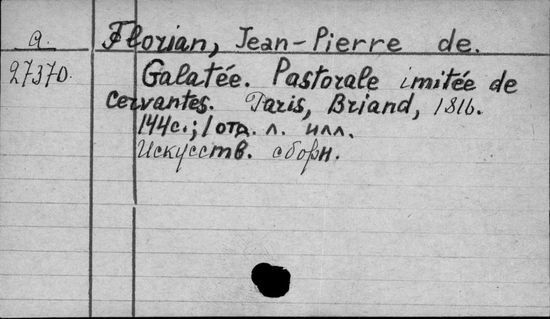 a. Florian, Jean-Pierre de.
27370. Galatée. Pastorale imitée de
Cervantes. Paris, Briand, 1816.
144с.; 1 отд. л. илл.
Искусств. сборн.